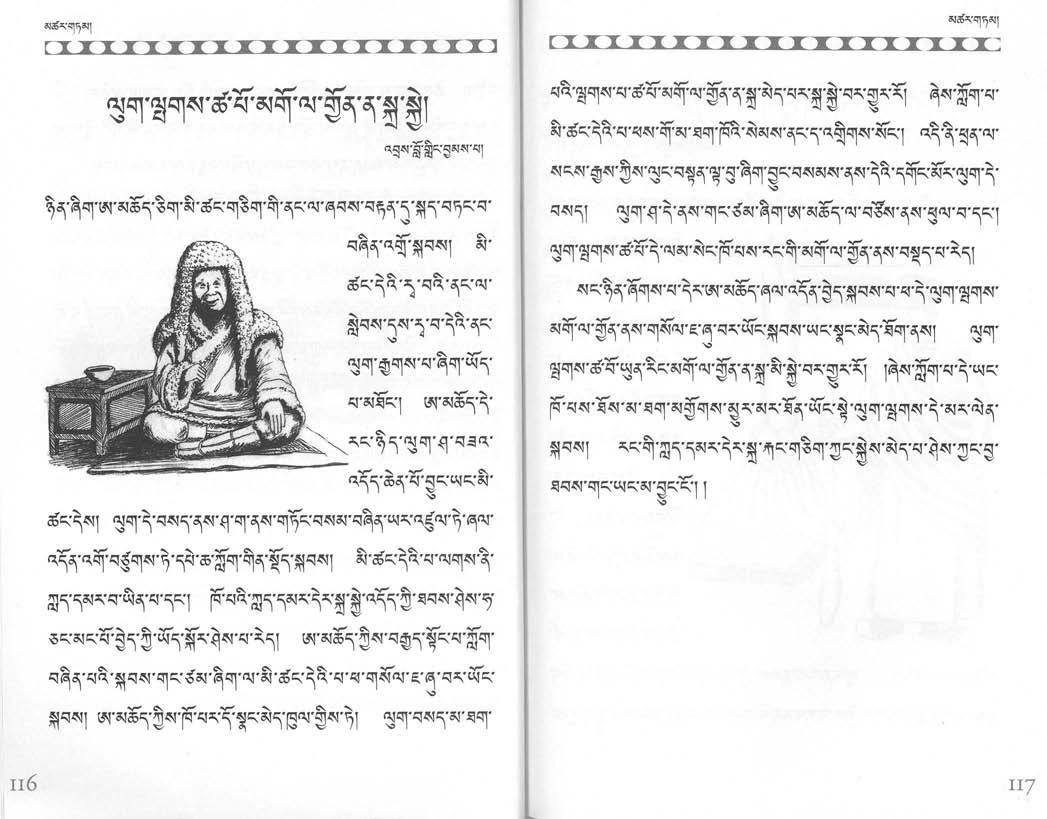 མཚར་གཏམ།
ལུག་ལྤགས་ཚ་པོ་མགོ་ལ་གྱོན་ན་སྐྲ་སྐྱེ།
འབྲས་བློ་གླིང་བྱམས་པ།
ཉིན་ཞིག་ཨ་མཆོད་ཅིག་མི་ཚང་གཅིག་གི་ནང་ལ་ཞབས་བརྟན་དུ་སྐད་བཏང་བ་
བཞིན་འགྲོ་སྐབས། མི་
ཚང་དེའི་རྭ་བའི་ནང་ལ་
སླེབས་དུས་རྭ་བ་དེའི་ནང་
ལུག་རྒྱགས་པ་ཞིག་ཡོད་
པ་མཐོང་། ཨ་མཆོད་དེ་
རང་ཉིད་ལུག་ཤ་བཟའ་
འདོད་ཆེན་པོ་བྱུང་ཡང་མི་
ཚང་དེས། ལུག་དེ་བསད་ནས་ཤ་ག་ནས་གཏོང་བསམ་བཞིན་ཡར་འཛུལ་ཏེ་ཞལ་
འདོན་འགོ་བཙུགས་ཏེ་དཔེ་ཆ་ཀློག་གིན་སྡོད་སྐབས། མི་ཚང་དེའི་པ་ལགས་ནི་
ཀླད་དམར་བ་ཡིན་པ་དང་། ཁོ་པའི་ཀླད་དམར་དེར་སྐྲ་སྐྱེ་འདོད་ཀྱི་ཐབས་ཤེས་ཧ་
ཅང་མང་པོ་བྱེད་ཀྱི་ཡོད་སྐོར་ཤེས་པ་རེད། ཨ་མཆོད་ཀྱིས་བརྒྱད་སྟོང་པ་ཀློག་
བཞིན་པའི་སྐབས་གང་ཙམ་ཞིག་ལ་མི་ཚང་དེའི་པ་ཕ་གསོལ་ཇ་ཞུ་བར་ཡོང་
སྐབས། ཨ་མཆོད་ཀྱིས་ཁོ་པར་དོ་སྣང་མེད་ཁུལ་གྱིས་ཏེ། ལུག་བསད་མ་ཐག་
116
མཚར་གཏམ།
པའི་ལྤགས་པ་ཚ་པོ་མགོ་ལ་གྱོན་ན་སྐྲ་མེད་པར་སྐྲ་སྐྱེ་བར་གྱུར་རོ། ཞེས་ཀློག་པ་
མི་ཚང་དེའི་པ་ཕས་གོ་མ་ཐག་ཁོའི་སེམས་ནང་ད་འགྲིགས་སོང་། འདི་ནི་ཕྲན་ལ་
སངས་རྒྱས་ཀྱིས་ལུང་བསྟན་ལྟ་བུ་ཞིག་བྱུང་བསམས་ནས་དེའི་དགོང་མོར་ལུག་དེ་
བསད། ལུག་ཤ་དེ་ནས་གང་ཙམ་ཞིག་ཨ་མཆོད་ལ་བཙོས་ནས་ཕུལ་བ་དང་།
ལུག་ལྤགས་ཚ་པོ་དེ་ལམ་སེང་ཁོ་པས་རང་གི་མགོ་ལ་གྱོན་ནས་བསྡད་པ་རེད།
སང་ཉིན་ཞོགས་པ་དེར་ཨ་མཆོད་ཞལ་འདོན་བྱེད་སྐབས་པ་ཕ་དེ་ལུག་ལྤགས་
མགོ་ལ་གྱོན་ནས་གསོལ་ཇ་ཞུ་བར་ཡོང་སྐབས་ཡང་སྣང་མེད་ཐོག་ནས། ལུག་
ལྤགས་ཚ་བོ་ཡུན་རིང་མགོ་ལ་གྱོན་ན་སྐྲ་མི་སྐྱེ་བར་གྱུར་རོ། །ཞེས་ཀློག་པ་དེ་ཡང་
ཁོ་པས་ཐོས་མ་ཐག་མགྱོགས་མྱུར་མར་ཐོན་ཡོང་སྟེ་ལུག་ལྤགས་དེ་མར་ལེན་
སྐབས། རང་གི་ཀླད་དམར་དེར་སྐྲ་རྐང་གཅིག་ཀྱང་སྐྱེས་མེད་པ་ཤེས་ཀྱང་བྱ་
ཐབས་གང་ཡང་མ་བྱུང་ངོ་། །
117